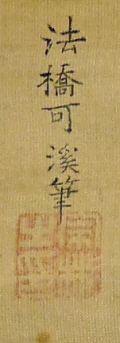 法橋可渓筆